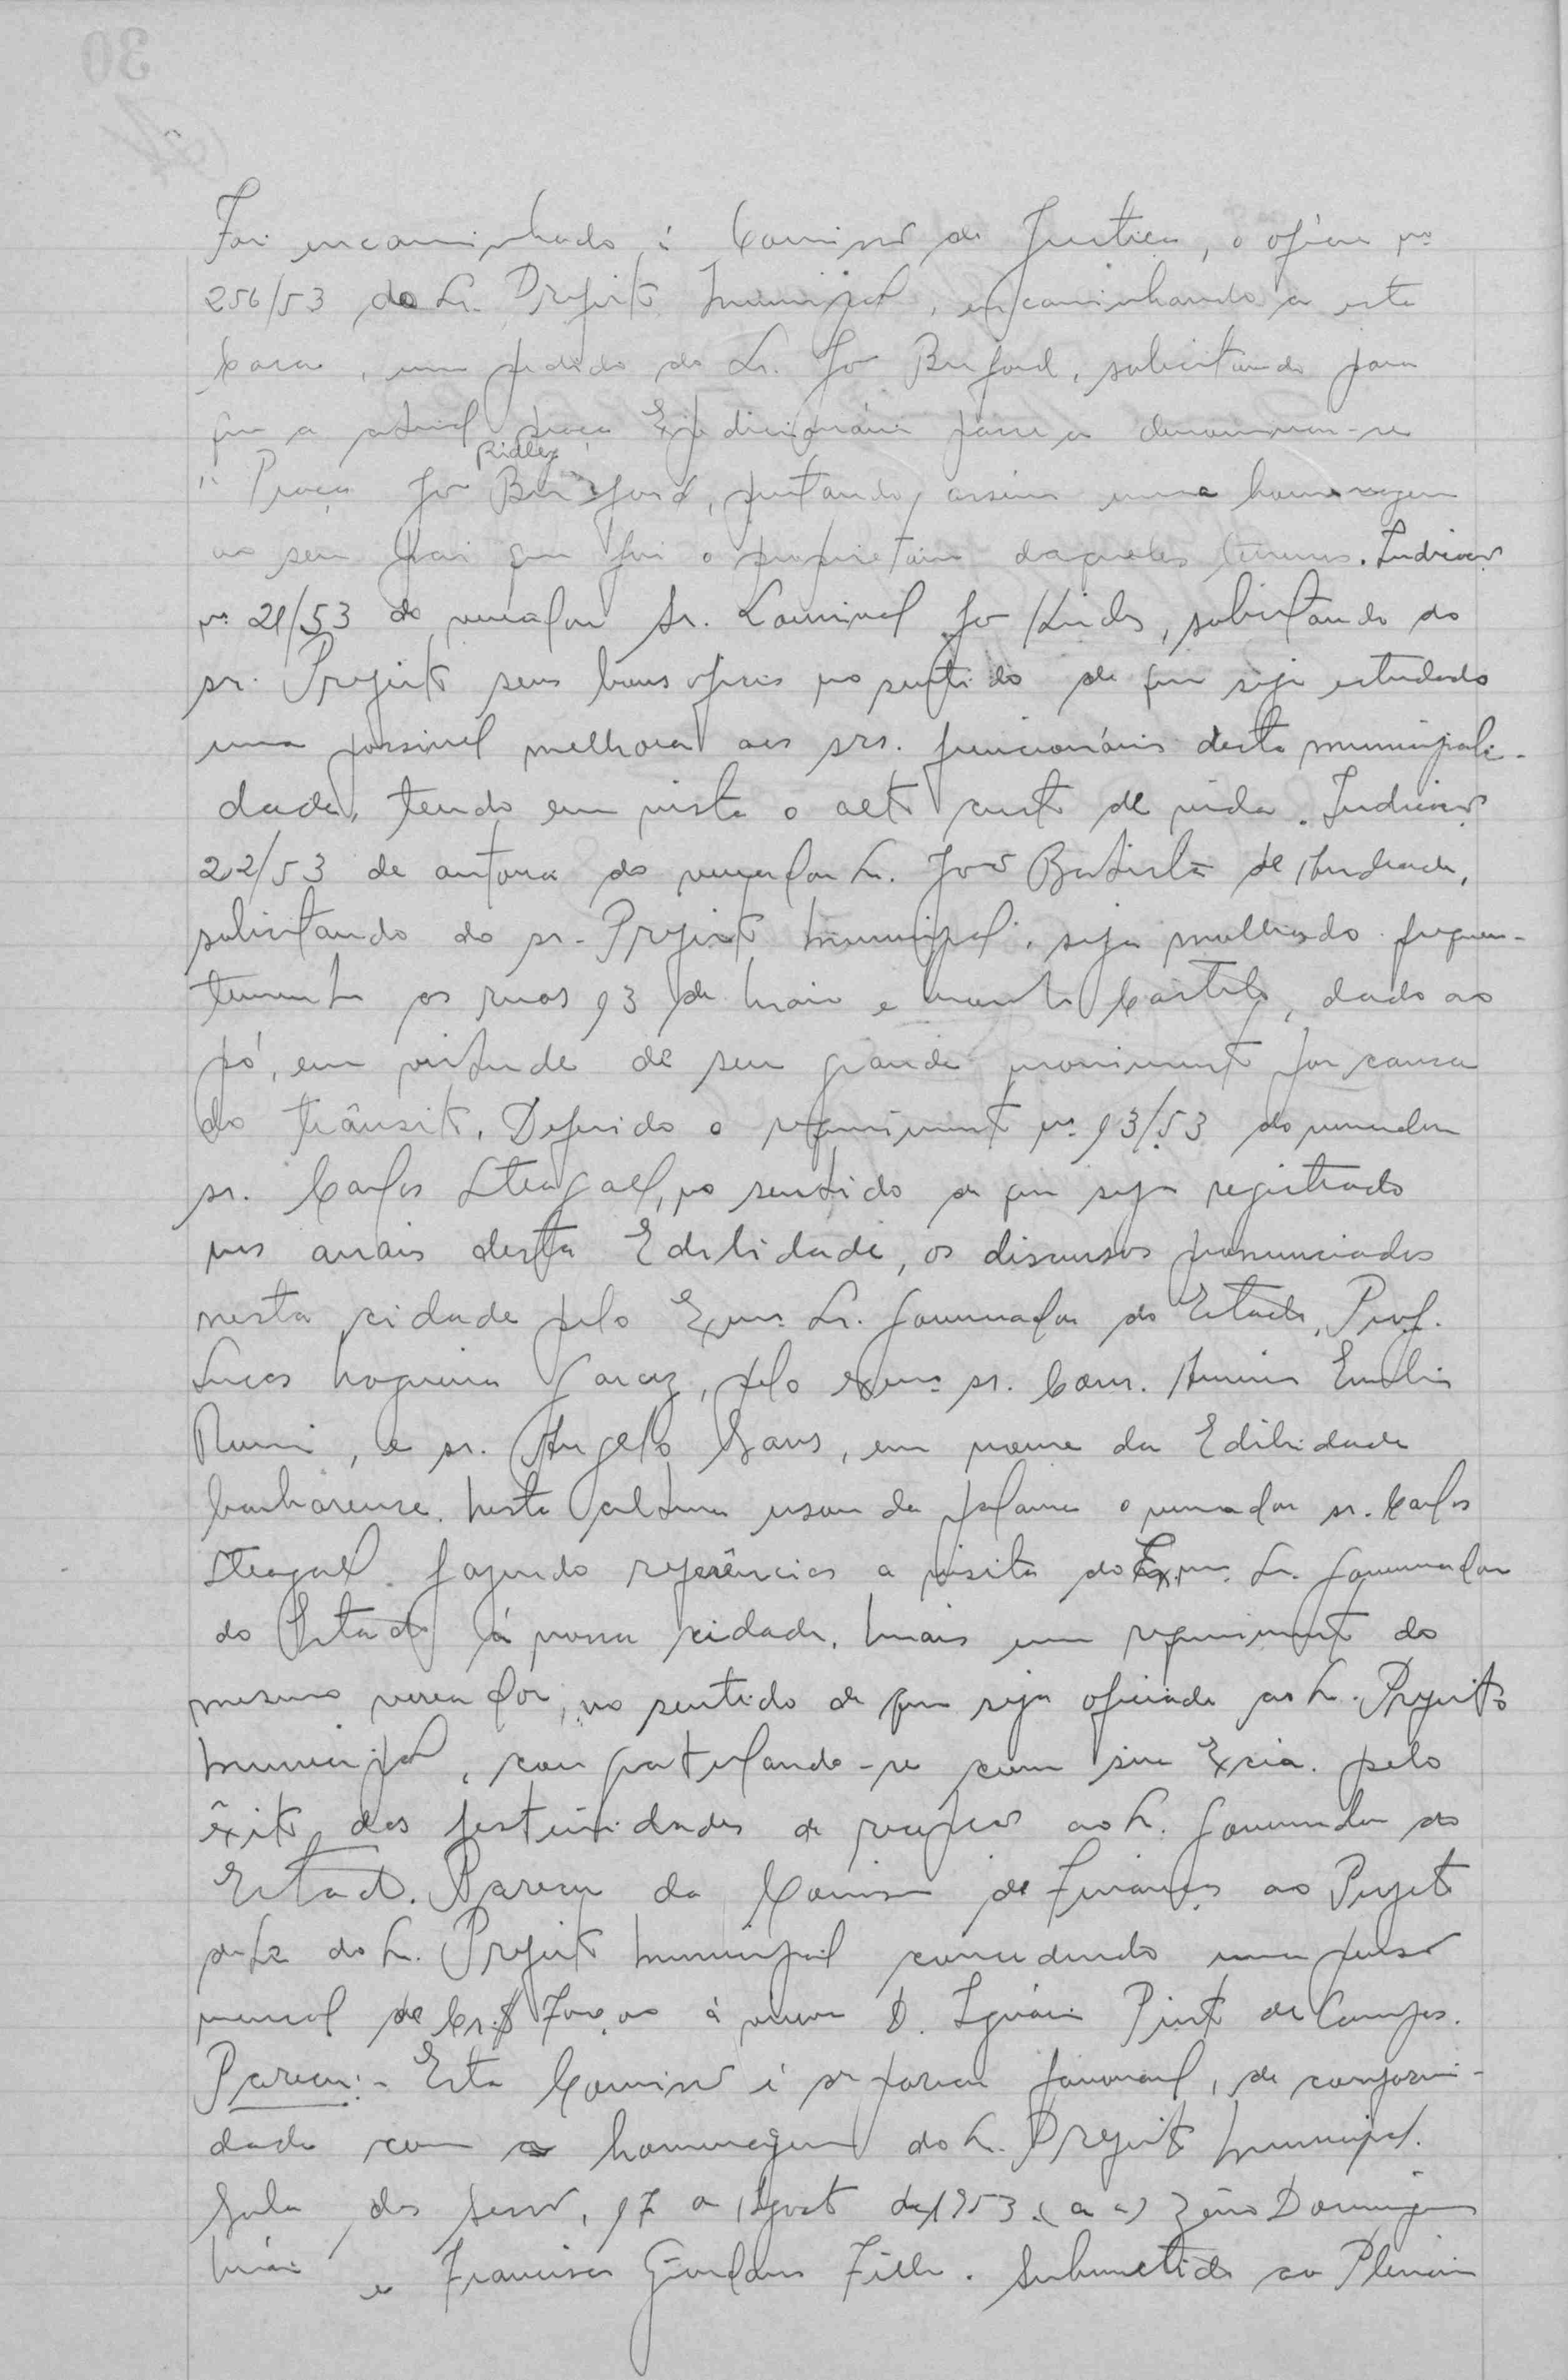 Foi encaminhado à Comissão de Justiça, o ofício nº
256/53 do Sr. Prefeito Municipal, encaminhando a esta
Casa, um pedido do Sr. Buford, solicitando para
que a atual praça Expedicionário passe a denominar-se
Ridley
"Praça Buford, prestando assim uma homenagem
ao seu pai que foi o proprietário daqueles terrenos. Indicação
nº 21/53 do vereador Sr. solicitando do
sr. Prefeito seus bons ofícios no sentido de que seja estudado
uma possivel melhora aos srs. funcionários desta municipali-
dade, tendo em vista o alto custo de vida. Indicação
22/53 de autoria do vereador Sr. João Batista de Andrade,
solicitando do sr. Prefeito Municipal, seja molhado frequen-
temente as ruas 13 de Maio e Monte Castelo, dado ao
pó, em virtude de seu grande movimento por causa
do trânsito. Deferido o requerimento nº 13/53 do vereador
sr. Carlos Steagall, no sentido de que seja registrado
nos anais desta Edilidade, os discursos pronunciados
nesta cidade pelo Exmo. Sr. Governador do Estado, Prof.
Lucas Nogueira Garcez, pelo exmo. sr. Com. Américo Emílio
Romi, e sr. Angelo Sans, em nome da Edilidade
barbarense. Nesta altura usou da palavra o vereador sr. Carlos
Steagall fazendo referências a visita do Exmo. Sr. Governador
do Estado à nossa cidade. Mais um requerimento do
mesmo vereador, no sentido de que seja oficiado ao Sr. Prefeito
Municipal, congratulando-se com sua Excia. pelo
êxito das festividades de recepção ao Sr. Governador do
Estado. Parecer da Comissão de Finanças ao Projeto
de Lei do Sr. Prefeito Municipal concedendo uma pensão
mensal de Cr.$ 700,00 à viuva D. Ignácia Pinto de Campos.
Parecer:- Esta Comissão é de parecer favoravel, de conformi-
dade com a homenagem do Sr. Prefeito Municipal.
Sala das Sessões, 17 de Agosto de 1953. (a a) Zeno Domingues
Maia e Francisco Giordano Filho. Submetido ao Plenário